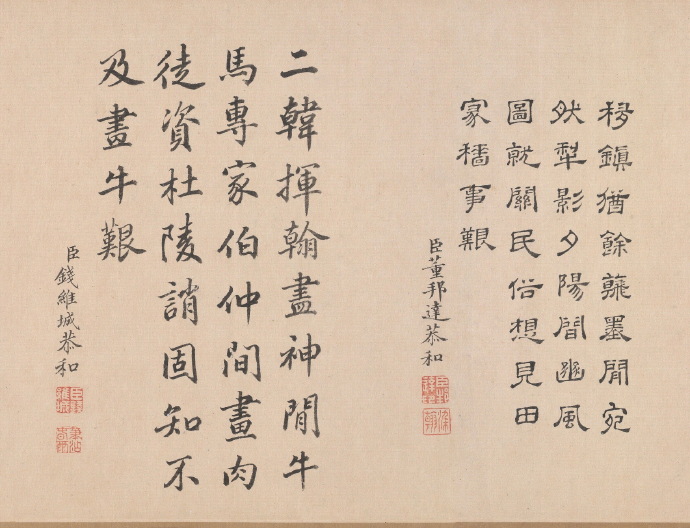 移鎮猶餘蘸墨閒宛
然犁影夕陽間豳風
圖就關民俗想見田
家穡事艱
臣董邦達恭和
二韓揮翰盡神閒牛
馬專家伯仲間畫肉
徒資杜陵誚固知不
及畫牛艱
臣錢維城恭和